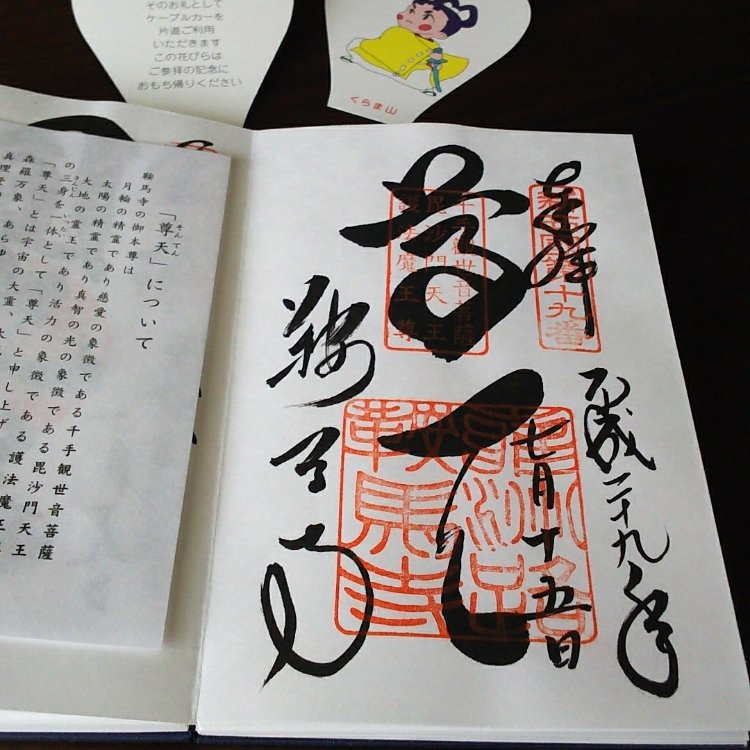 そのお礼として
ケーブルカーを
片道ご利用
いただきます
この花びらは
ご参拝の記念に
おもち帰りください
くらま山
「尊天」について
鞍馬寺の御本尊は
月輪の精霊であり慈愛の象徴である千手観世音菩薩
太陽の精霊であり真智の光の象徴である毘沙門天王
大地の霊王であり活力の象徴である護法魔王
の三身を一体として「尊天」と申し上げ
「尊天」とは宇宙の大霊、大
森羅万象、あらゆ
奉拝
十九番
平成二十九年
七月十五日
千手観世音菩薩
毘沙門天王
護法魔王尊
尊天
鞍馬寺
鞍馬寺